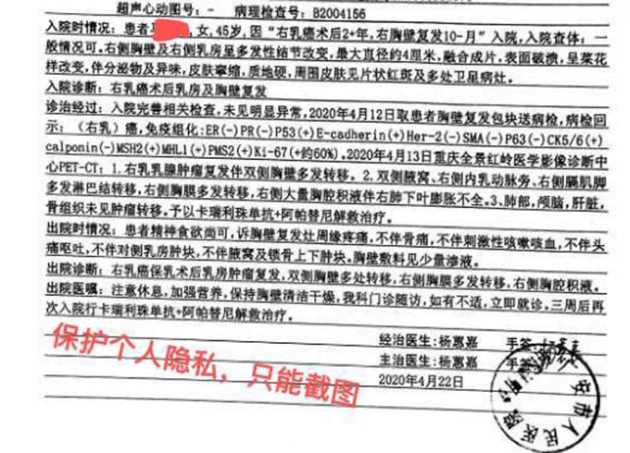 超声心动图号：-    病理检查号：B2004156
入院时情况：患者，女，45岁，因“右乳癌术后2+年，右胸壁复发10-月”入院，入院查体：一
般情况可，右侧胸壁及右侧乳房呈多发性结节改变，最大直径约4厘米，融合成片，表面破溃，呈菜花
样改变，伴分泌物及异味，皮肤挛缩，质地硬，周围皮肤见片状红斑及多处卫星病灶。
入院诊断：右乳癌术后乳房及胸壁复发
诊治经过：入院完善相关检查，未见明显异常，2020年4月12日取患者胸壁复发包块送病检，病检回
示：（右乳）癌，免疫组化：ER(-)PR(-)P53(+)E-cadherin(+)Her-2(-)SMA(-)P63(-)CK5/6(+)
calponin(-)MSH2(+)MHL1(+)PMS2(+)Ki-67(+约60%)。2020年4月13日重庆全景红岭医学影像诊断中
心PET-CT：1.右乳乳腺肿瘤复发伴双侧胸壁多发转移。2.双侧腋窝、右侧内乳动脉旁、右侧膈肌脚
多发淋巴结转移，右侧胸膜多发转移，右侧大量胸腔积液伴右肺下叶膨胀不全。3.肺部，颅脑，肝脏，
骨组织未见肿瘤转移。予以卡瑞利珠单抗+阿帕替尼解救治疗。
出院时情况：患者精神食欲尚可，诉胸壁复发灶周缘疼痛，不伴骨痛，不伴刺激性咳嗽咳血，不伴头
痛呕吐，不伴对侧乳房肿块，不伴腋窝及锁骨上下肿块。胸壁敷料见少量渗液。
出院诊断：右乳癌保乳术后乳房肿瘤复发，双侧胸壁多处转移，右侧胸膜多发转移，右侧胸腔积液。
出院医嘱：注意休息，加强营养，保持胸壁清洁干燥，我科门诊随访，如有不适，立即就诊，三周后再
次入院行卡瑞利珠单抗+阿帕替尼解救治疗。
经治医生：杨惠嘉    手签：
主治医生：杨惠嘉    手签：
2020年4月22日
保护个人隐私，只能截图
安市人民医院